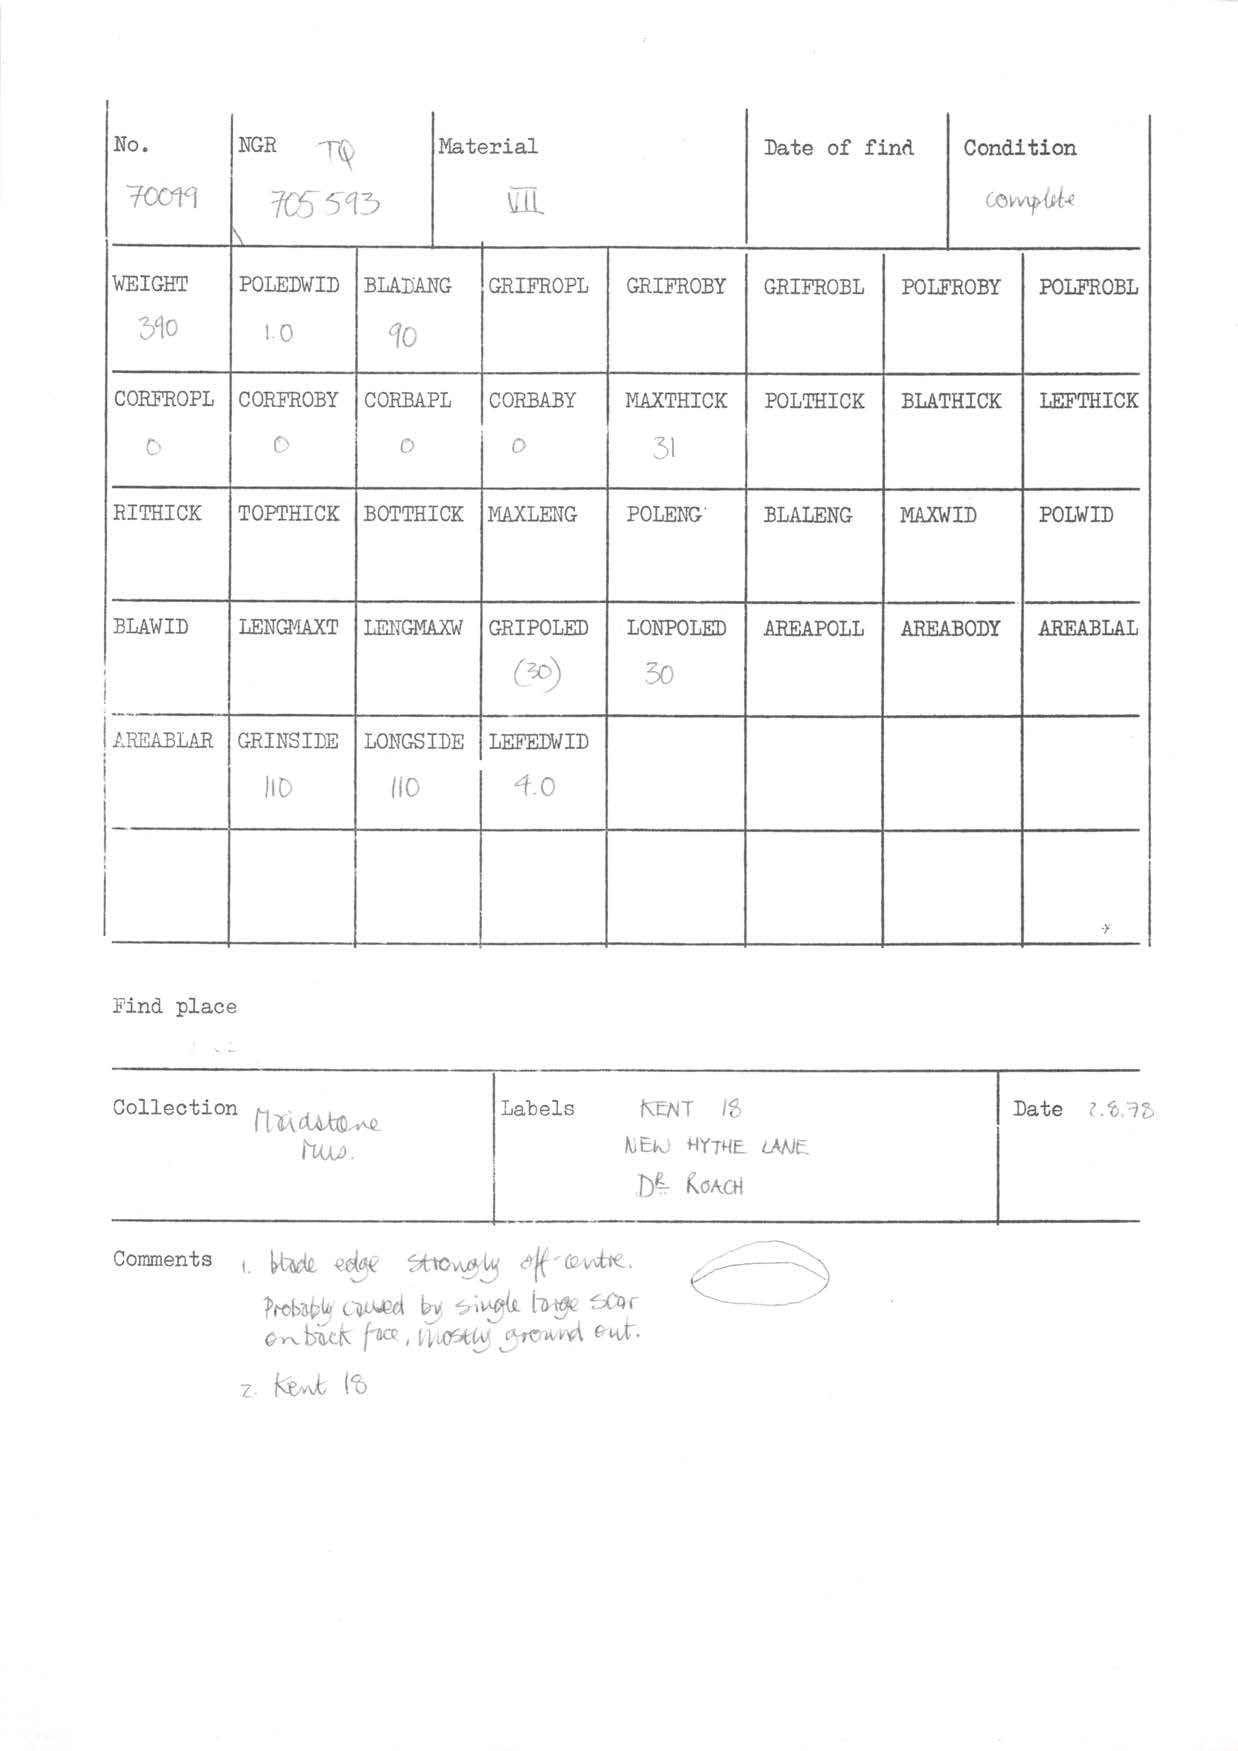 No. NGR TQ Material Date of find Condition
705 593 VII complete
WEIGHT POLEDWID BLADANG GRIFROPL GRIFROBY GRIFROBL POLFROBY POLFROBL
390 1.0 90
CORFROPL CORFROBY CORBAPL CORBABY MAXTHICK POLTHICK BLATHICK LEFTHICK
0 0 0 0 31
RITHICK TOPTHICK BOTTHICK MAXLENG POLENG BLALENG MAXWID POLWID
BLAWID LENGMAXT LENGMAXW GRIPOLED LONPOLED AREAPOLL AREABODY AREABLAL
(30) 30
AREABLAR GRINSIDE LONGSIDE LEFEDWID
110 110 4.0
Find place
Collection Maidstone Labels KENT 18 Date 2.8.78
Mus. NEW HYTHE LANE
DR ROACH
Comments 1. blade edge strongly off-centre.
Probably caused by single large scar
on back face, mostly ground out.
2. Kent 18